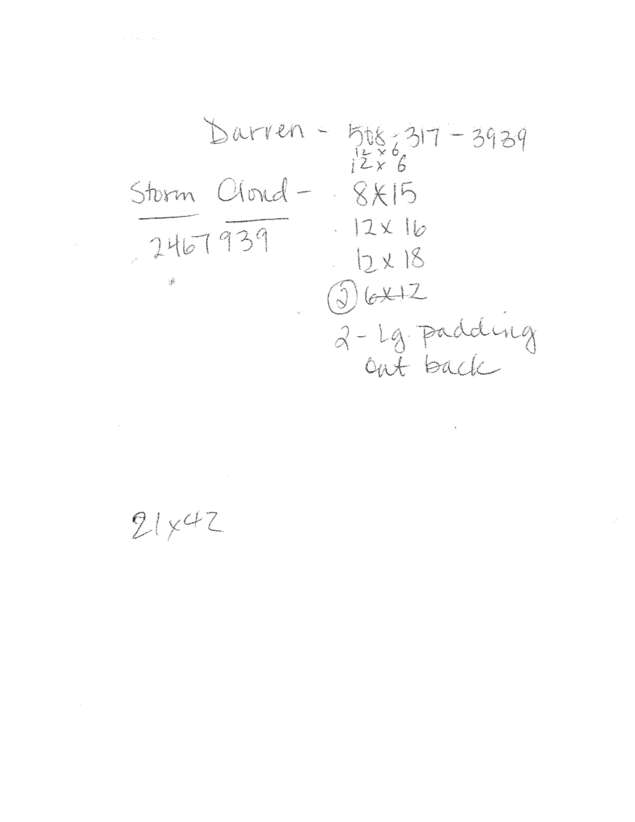 Darren - 508-317-3939
12x6
12x6
Storm Cloud - 8x15
2467939
12x16
12x18
② 6x12
2 - Lg. padding
out back
21x42